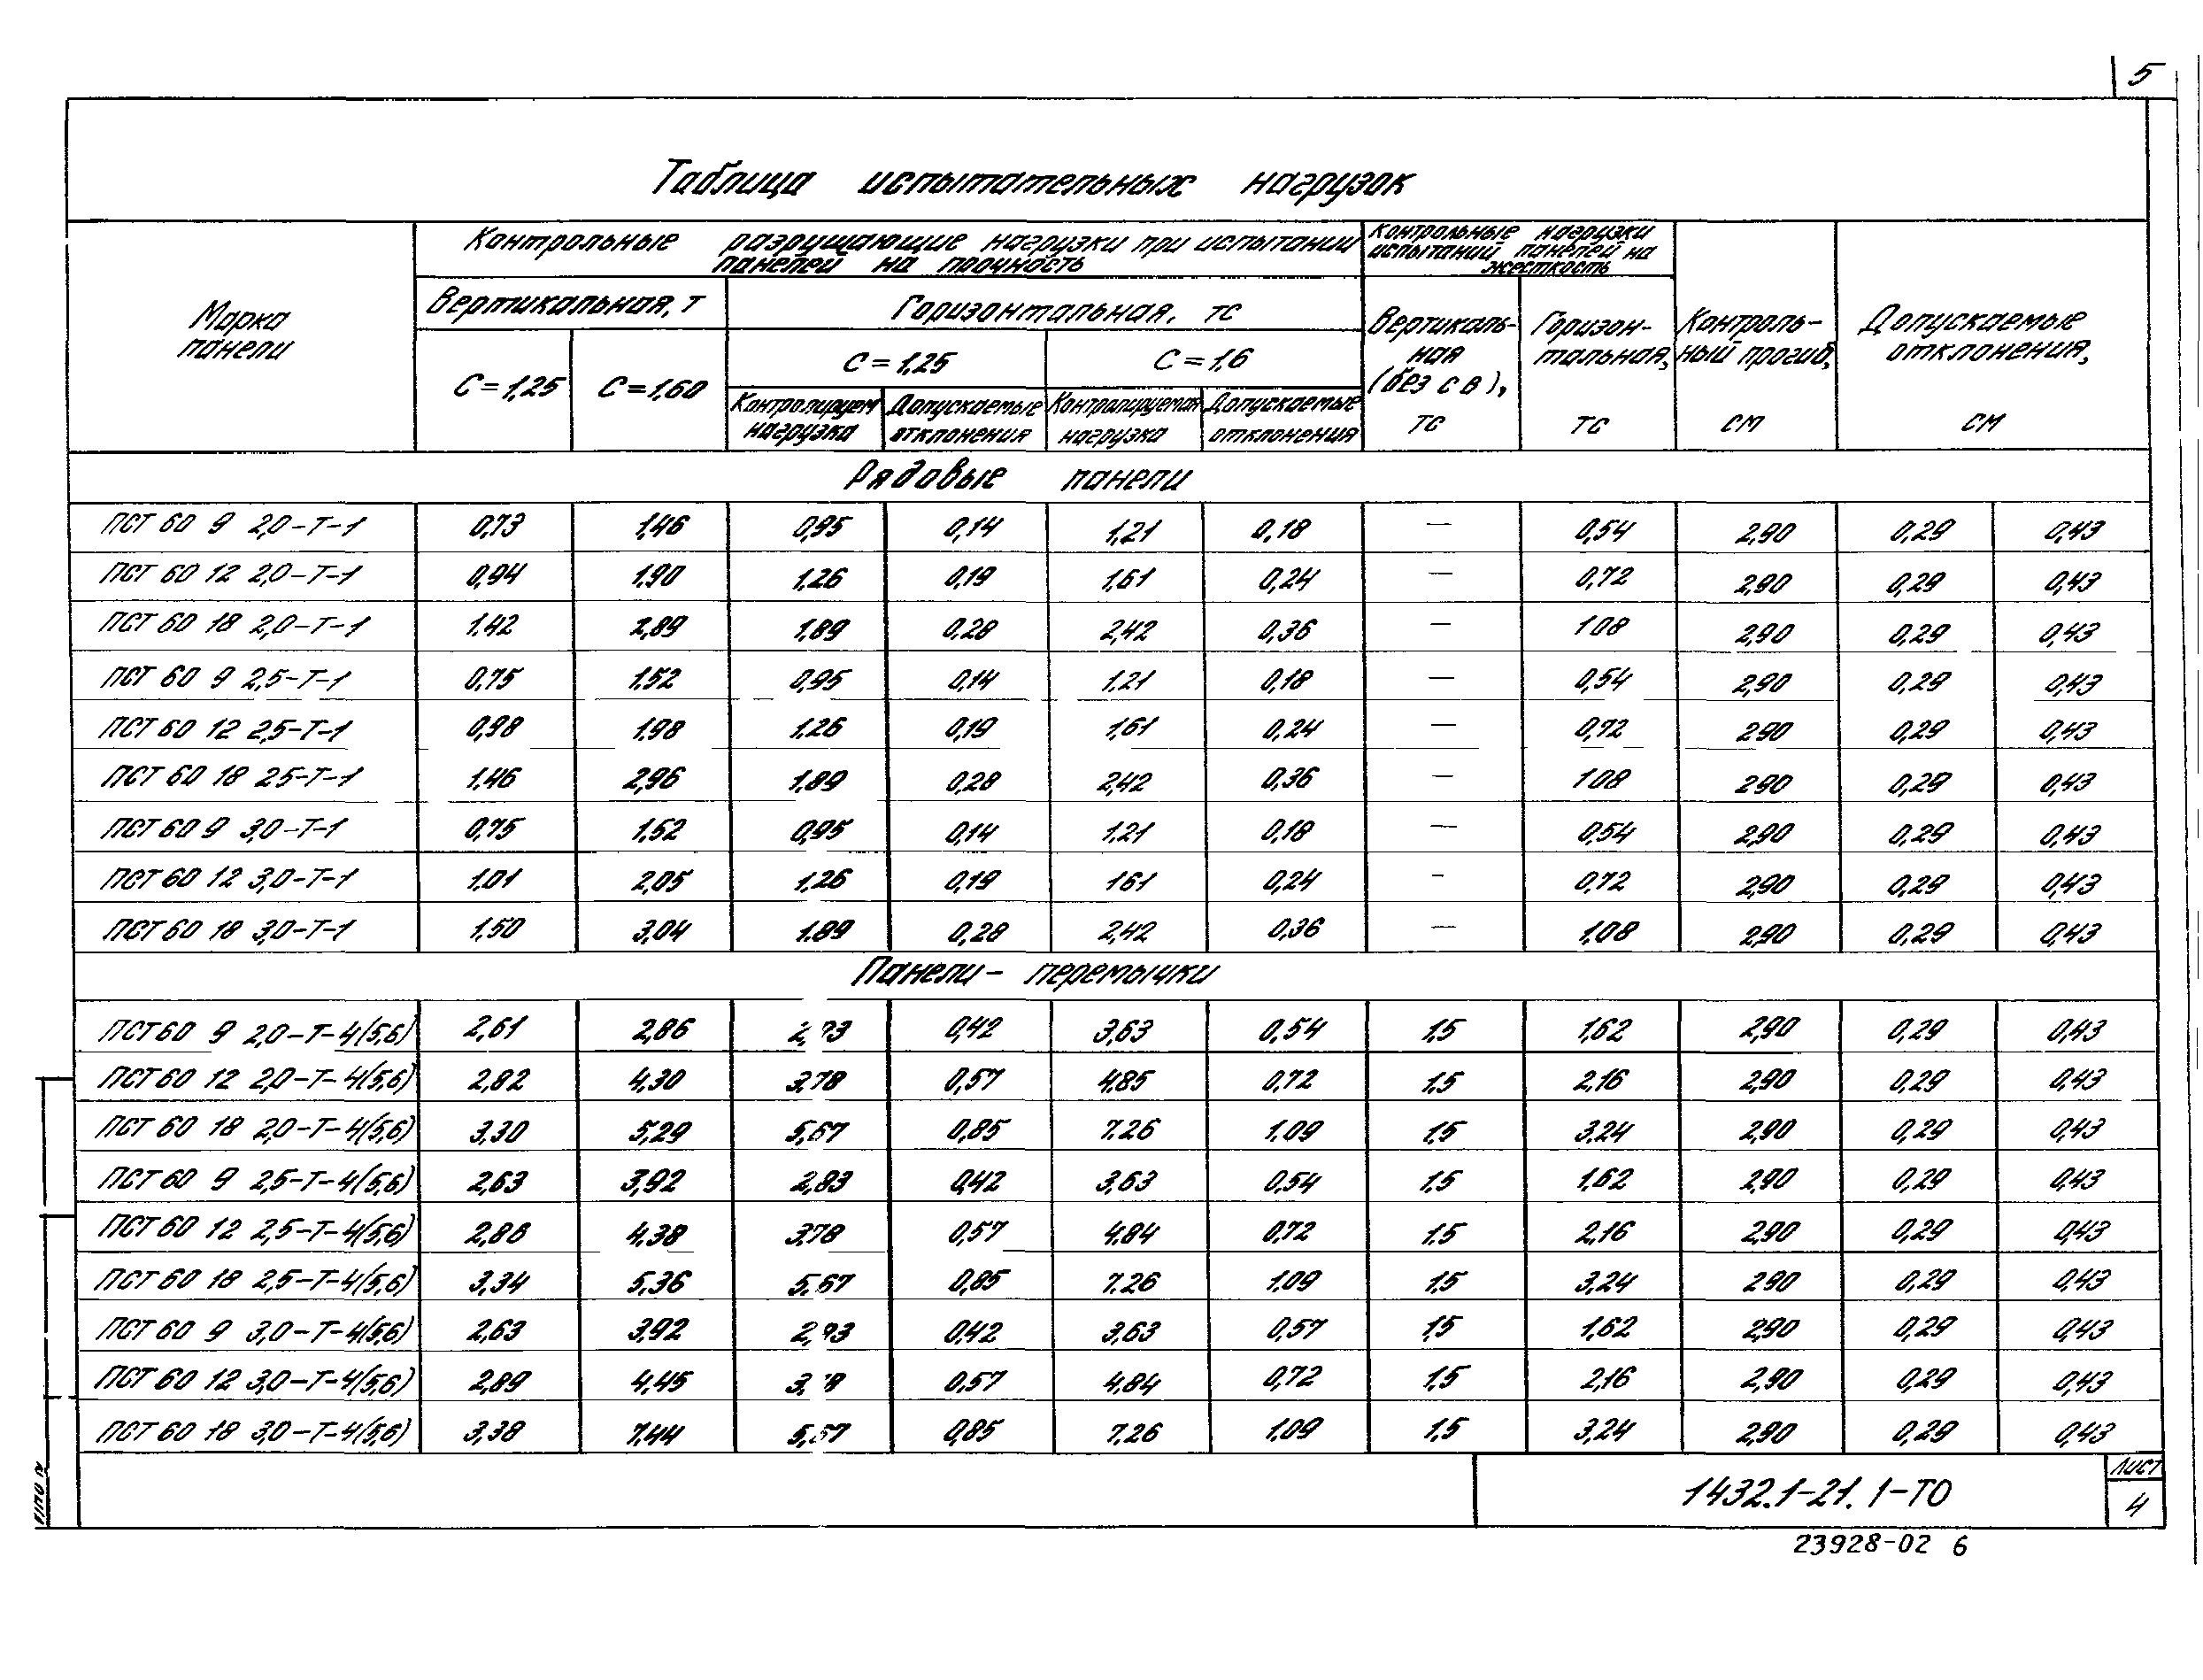 5
Таблица испытательных нагрузок
Марка панели
Контрольные разрушающие нагрузки при испытании панелей на прочность
Контрольные нагрузки испытаний панелей на жесткость
Вертикальная, т
Горизонтальная, тс
С=1,25
С=1,60
С=1,25
С=1,6
Контролируем нагрузка
Допускаемые отклонения
Контролируемая нагрузка
Допускаемые отклонения
Вертикаль-ная (без с в), тс
Горизон-тальная, тс
Контроль-ный прогиб, см
Допускаемые отклонения, см
Рядовые панели
ПСТ 60 9 2,0-Т-1 0,73 1,46 0,95 0,14 1,21 0,18 — 0,54 2,90 0,29 0,43
ПСТ 60 12 2,0-Т-1 0,94 1,90 1,26 0,19 1,61 0,24 — 0,72 2,90 0,29 0,43
ПСТ 60 18 2,0-Т-1 1,42 2,89 1,89 0,28 2,42 0,36 — 108 2,90 0,29 0,43
ПСТ 60 9 2,5-Т-1 0,75 1,52 0,95 0,14 1,21 0,18 — 0,54 2,90 0,29 0,43
ПСТ 60 12 2,5-Т-1 0,98 1,98 1,26 0,19 1,61 0,24 — 0,72 290 0,29 0,43
ПСТ 60 18 25-Т-1 1,46 2,96 1,89 0,28 2,42 0,36 — 108 290 0,29 0,43
ПСТ 60 9 3,0-Т-1 0,75 1,52 0,95 0,14 1,21 0,18 — 0,54 2,90 0,29 0,43
ПСТ 60 12 3,0-Т-1 1,01 2,05 1,26 0,19 161 0,24 - 0,72 2,90 0,29 0,43
ПСТ 60 18 3,0-Т-1 1,50 3,04 1.89 0,28 2,42 0,36 — 1,08 2,90 0,29 0,43
Панели-перемычки
ПСТ 60 9 2,0-Т-4(5,6) 2,61 2,86 0,42 3,63 0,54 1,5 1,62 2,90 0,29 0,43
ПСТ 60 12 2,0-Т-4(5,6) 2,82 4,30 3,78 0,57 4,85 0,72 1,5 2,16 2,90 0,29 0,43
ПСТ 60 18 2,0-Т-4(5,6) 3,30 5,29 5,67 0,85 7,26 1,09 1,5 3,24 2,90 0,29 0,43
ПСТ 60 9 2,5-Т-4(5,6) 2,63 3,92 2,83 0,42 3,63 0,54 1,5 1,62 2,90 0,29 0,43
ПСТ 60 12 2,5-Т-4(5,6) 2,86 4,38 3,78 0,57 4,84 0,72 1,5 2,16 2,90 0,29 0,43
ПСТ 60 18 2,5-Т-4(5,6) 3,34 5,36 5,67 0,85 7,26 1,09 1,5 3,24 290 0,29 0,43
ПСТ 60 9 3,0-Т-4(5,6) 2,63 3,92 0,42 3,63 0,57 1,5 1,62 2,90 0,29 0,43
ПСТ 60 12 3,0-Т-4(5,6) 2,89 4,45 0,57 4,84 0,72 1,5 2,16 2,90 0,29 0,43
ПСТ 60 18 3,0-Т-4(5,6) 3,38 7,44 0,85 7,26 1,09 1,5 3,24 2,90 0,29 0,43
1432.1-21.1-ТО
Лист
4
23928-02 6